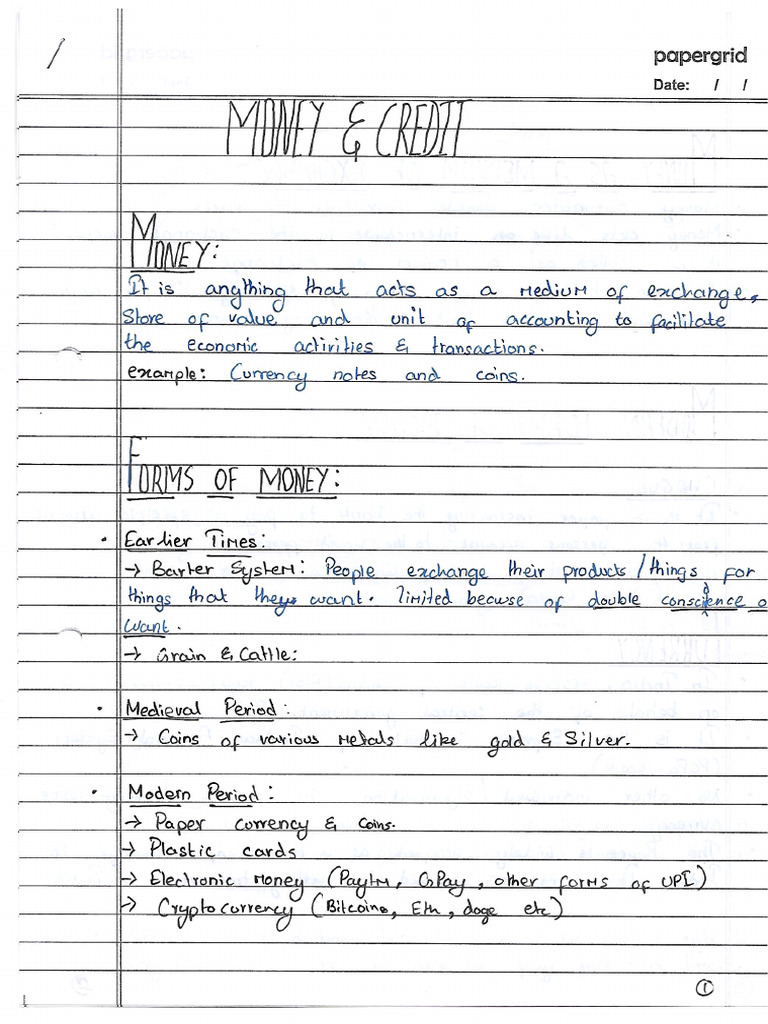 papergrid
Date: / /
MONEY & CREDIT
MONEY:
It is anything that acts as a medium of exchange,
Store of value and unit of accounting to facilitate
the economic activities & transactions.
example: Currency notes and coins.
FORMS OF MONEY:
• Earlier Times:
→ Barter System: People exchange their products/things for
things that they want. limited because of double conscidence o
want.
→ Grain & Cattle:
• Medieval Period:
→ Coins of various metals like gold & Silver.
• Modern Period:
→ Paper currency & coins.
→ Plastic cards
→ Electronic Money (Paytm, GPay, other forms of UPI)
→ Cryptocurrency (Bitcoins, Eth, doge etc)
①